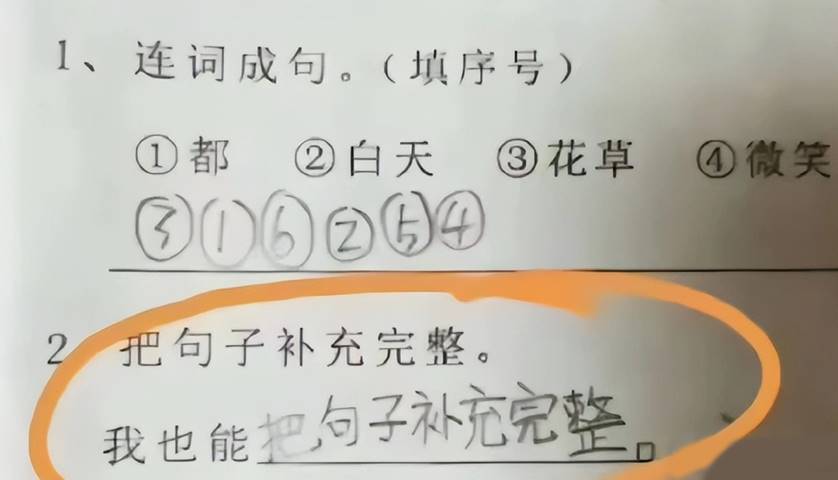 1、连词成句。(填序号)
①都 ②白天 ③花草 ④微笑
③①⑥②⑤④
2 把句子补充完整。
我也能把句子补充完整。